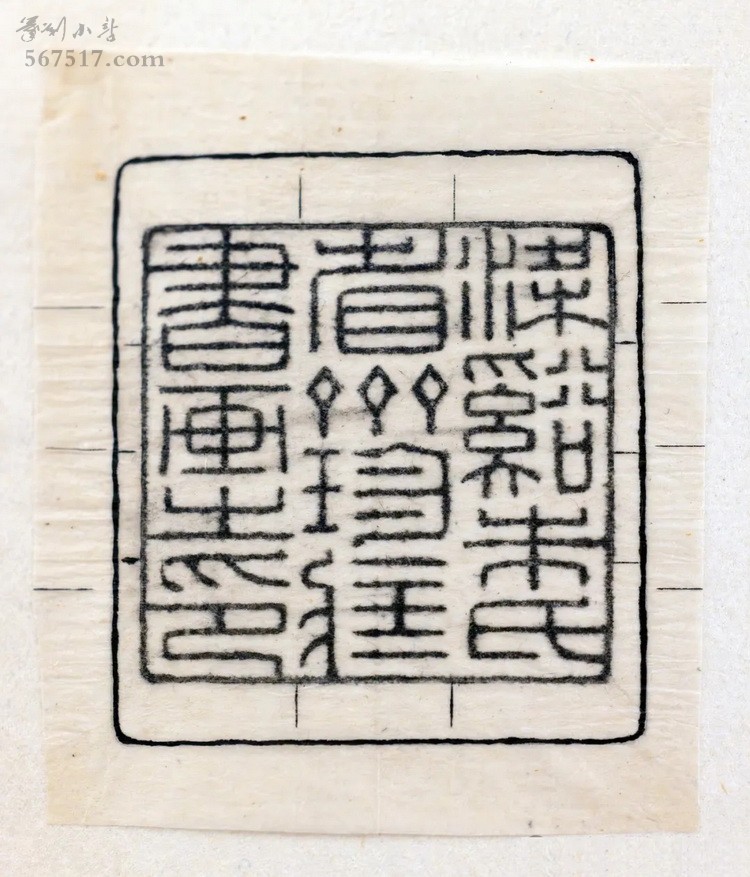 篆刻小站
567517.com
梁谿朱氏
省齋珍
書畫之印